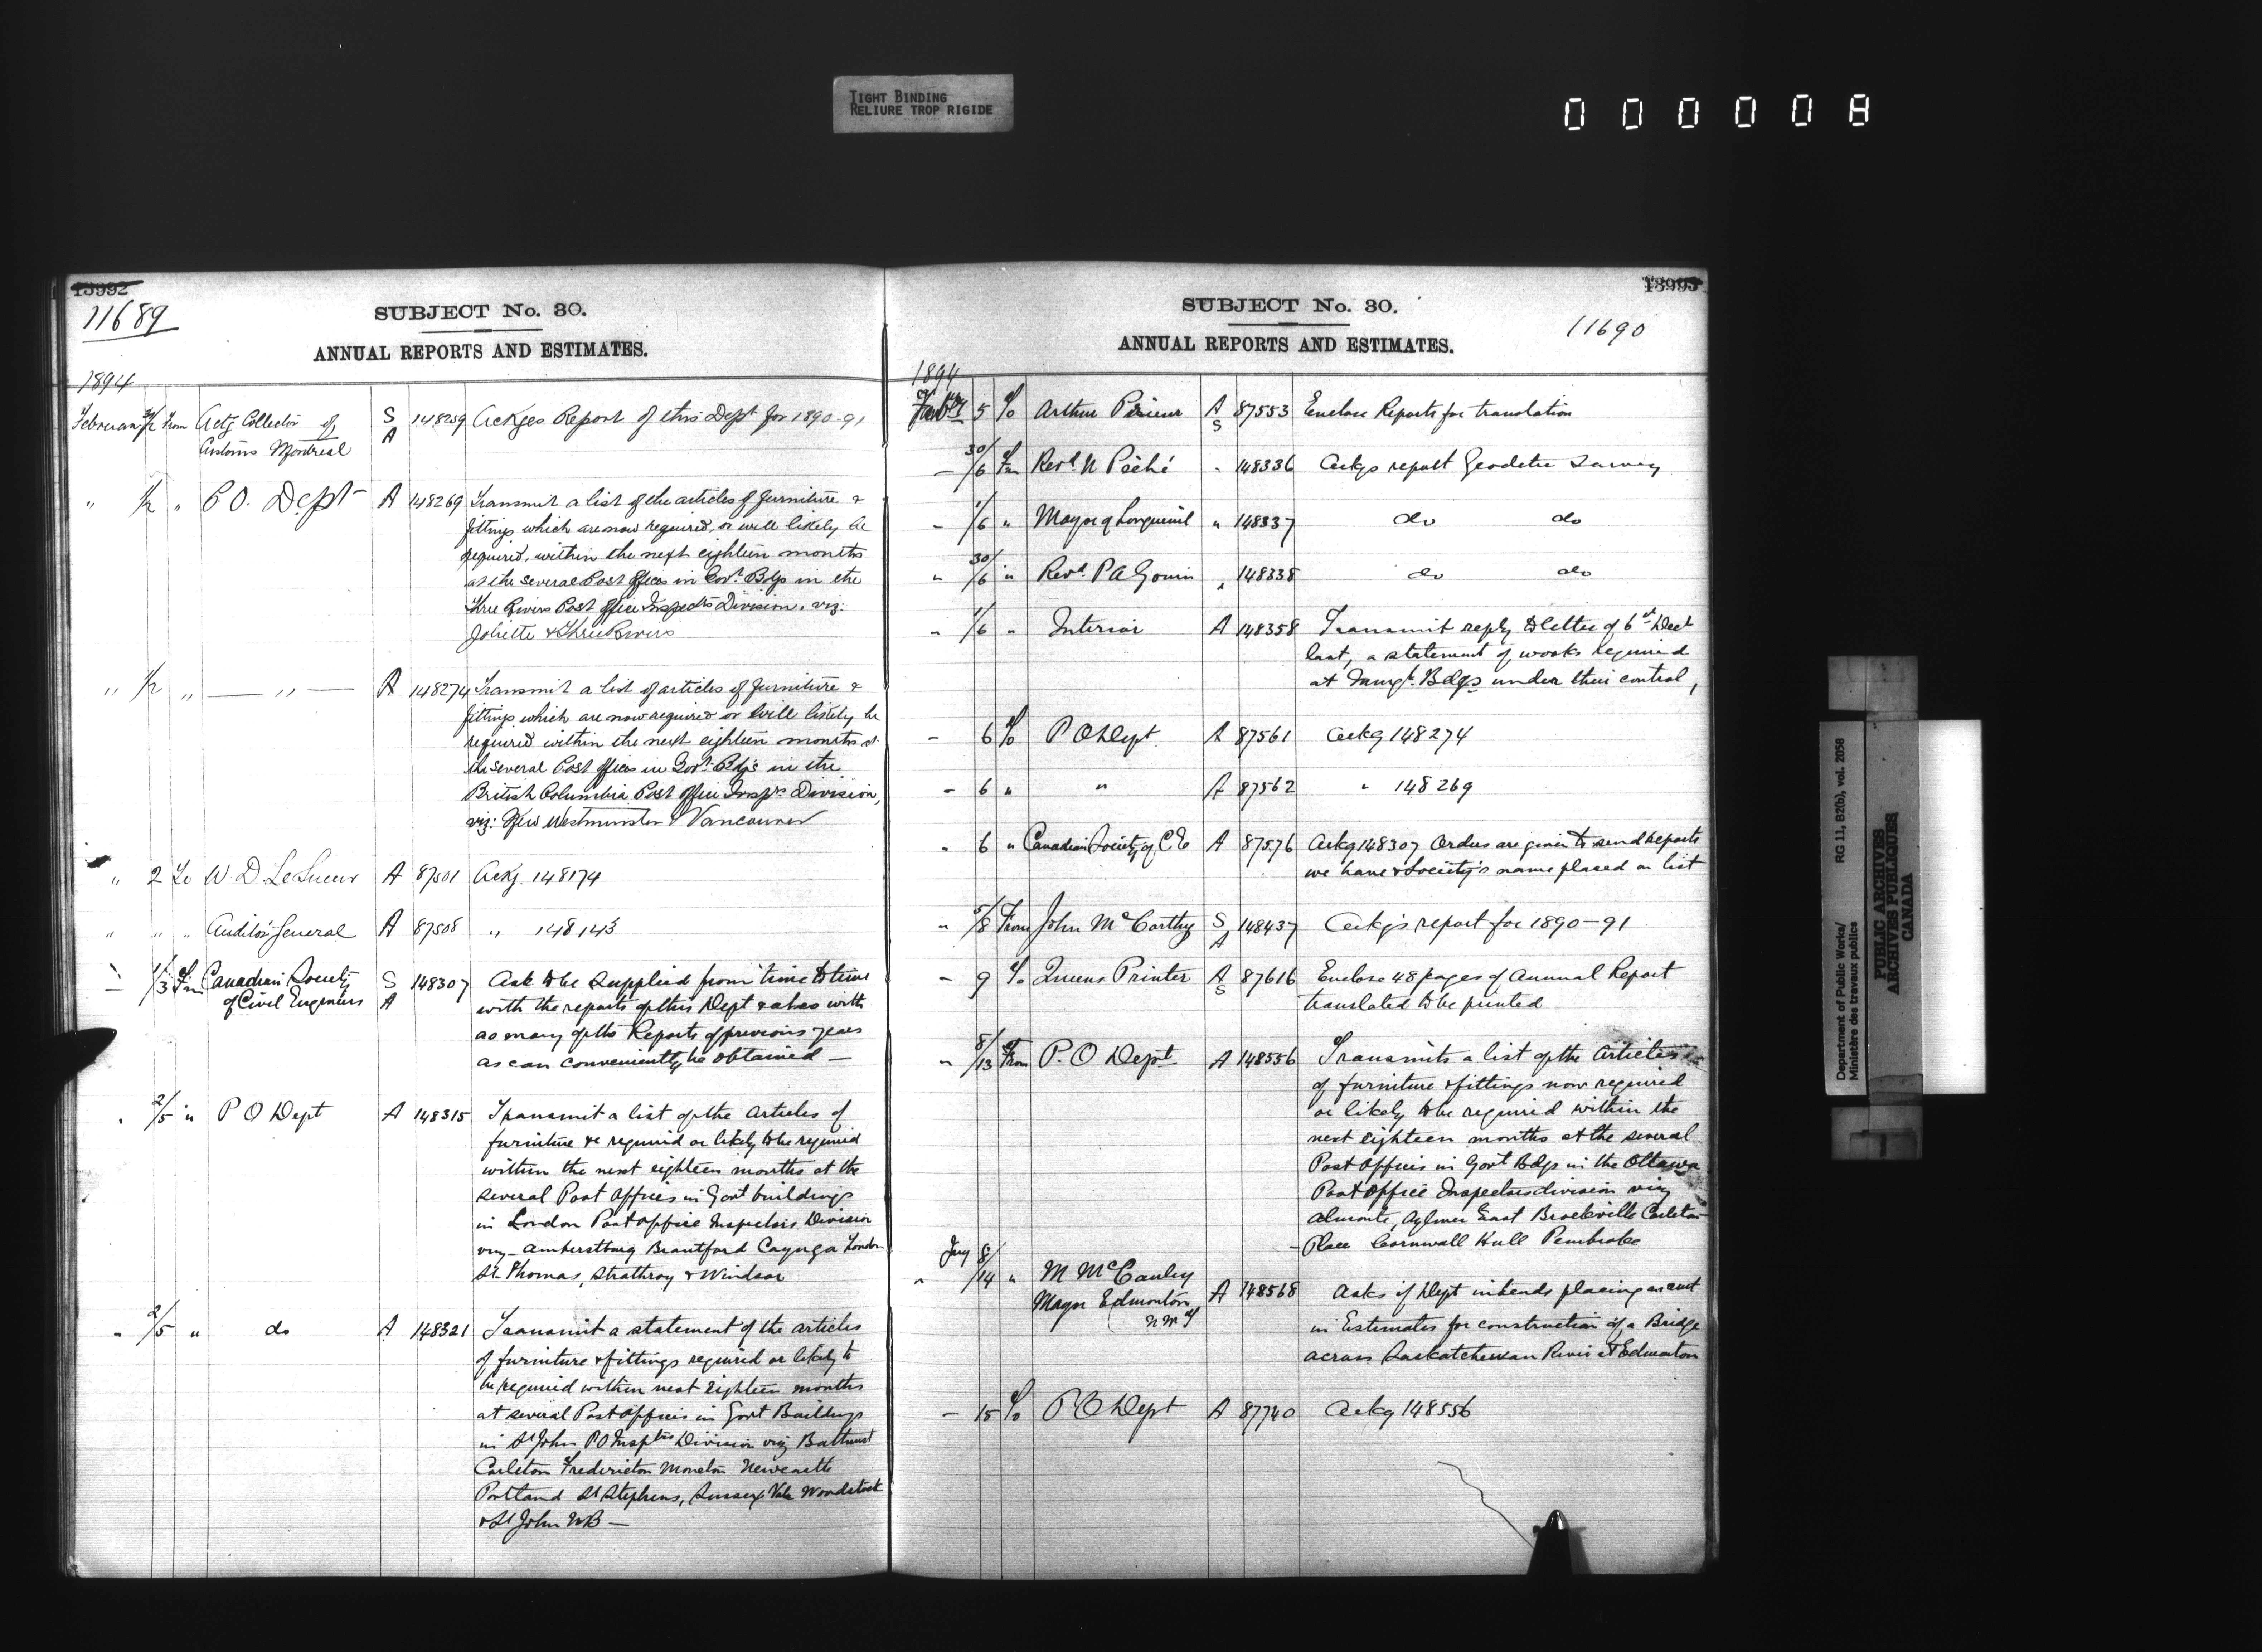 TIGHT BINDING
RELIURE TROP RIGIDE
000008
13992
11689
SUBJECT No. 30.
ANNUAL REPORTS AND ESTIMATES.
1894
From Actg Collector of Customs Montreal S A 148259 Ackges Report of this Dept for 1890-91
" 1/2 " P O. Dept A 148269 Transmit a list of the articles of furniture &
fittings which are now required, or will likely be
required, within the next eighteen months
at the several Post Offices in Govt. Bdgs in the
Three Rivers Post Office Inspectors Division, viz:
Joliette & Three Rivers
" 1/2 " — " — A 148274 Transmit a list of articles of furniture &
fittings which are now required or will likely be
required within the next eighteen months at
the several Post Offices in Govt. Bdgs in the
British Columbia Post Office Inspr. Division,
viz: New Westminster & Vancouver
" 2 To W. D. LeSueur A 87501 Ackg. 148174
" " " Auditor General A 87508 " 148143
1/3 Fm Canadian Society of Civil Engineers S A 148307 Ask to be supplied from time to time
with the reports of this Dept & also with
as many of the Reports of previous years
as can conveniently be obtained —
2/5 " P O Dept A 148315 Transmit a list of the articles of
furniture &c required or likely to be required
within the next eighteen months at the
several Post Offices in Govt buildings
in London Post office Inspectors Division
viz — Amherstburg Brantford Cayuga London
St. Thomas, Strathroy & Windsor
" 2/5 " do A 148321 Transmit a statement of the articles
of furniture & fittings required or likely to
be required within next eighteen months
at several Post offices in Govt Buildings
in St John PO Insptrs Division viz Bathurst
Carleton Fredericton Moncton Newcastle
Portland St Stephens, Sussex Vale Woodstock
& St John NB —
13993
SUBJECT No. 30.
11690
ANNUAL REPORTS AND ESTIMATES.
1894
5 To Arthur A S 87553 Enclose Reports for translation
— 30/6 Fm Revd. N Piché " 148336 Ackgs report Geodetic Survey
— 1/6 " Mayor of Longueuil " 148337 do do
" 30/6 " Revd. P A Gouin " 148338 do do
" 1/6 " Interior A 148358 Transmit reply to letter of 6th Dect
last, a statement of works required
at Bdgs under their control,
— 6 To P O Dept. A 87561 Ackg 148274
— 6 " " A 87562 " 148269
" 6 " Canadian Society of C E A 87576 Ackg 148307 Orders are given to send Reports
we have & Society's name placed on list
" 5/8 From John McCarthy S A 148437 Ackgs report for 1890-91
— 9 To Queens Printer A S 87616 Enclose 48 pages of Annual Report
translated to be printed
" 8/13 From P. O Dept. A 148556 Transmits a list of the Articles
of furniture & fittings now required
or likely to be required within the
next eighteen months at the several
Post Offices in Govt Bdgs in the Ottawa
Post Office Inspectors division viz
Almonte, Aylmer East Brockville Carleton
— Place Cornwall Hull Pembroke
" 8/14 " M McCauley Mayor Edmonton A 148568 Asks if Dept intends placing an amt
in Estimates for construction of a Bridge
across Saskatchewan River at Edmonton
— 15 To P O Dept A 87740 Ackg 148556
Department of Public Works/ RG 11, B2(b), vol. 2058
Ministère des travaux publics
PUBLIC ARCHIVES
ARCHIVES PUBLIQUES
CANADA